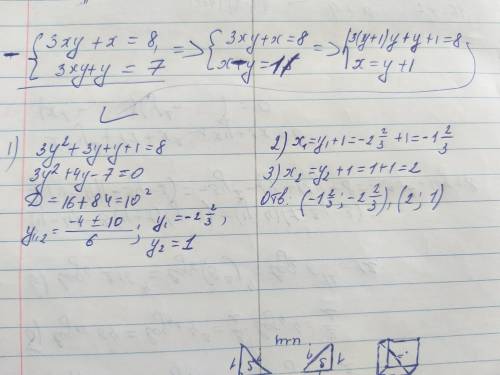 - { 3xy + x = 8, => { 3xy + x = 8 => { 3(y+1)y + y + 1 = 8
3xy + y = 7 x - y = 1 x = y + 1
1) 3y² + 3y + y + 1 = 8
3y² + 4y - 7 = 0
D = 16 + 84 = 10²
y₁,₂ = (-4 ± 10)/6 ; y₁ = -2 2/3,
y₂ = 1
2) x₁ = y₁ + 1 = -2 2/3 + 1 = -1 2/3
3) x₂ = y₂ + 1 = 1 + 1 = 2
Отв. (-1 2/3; -2 2/3), (2; 1)